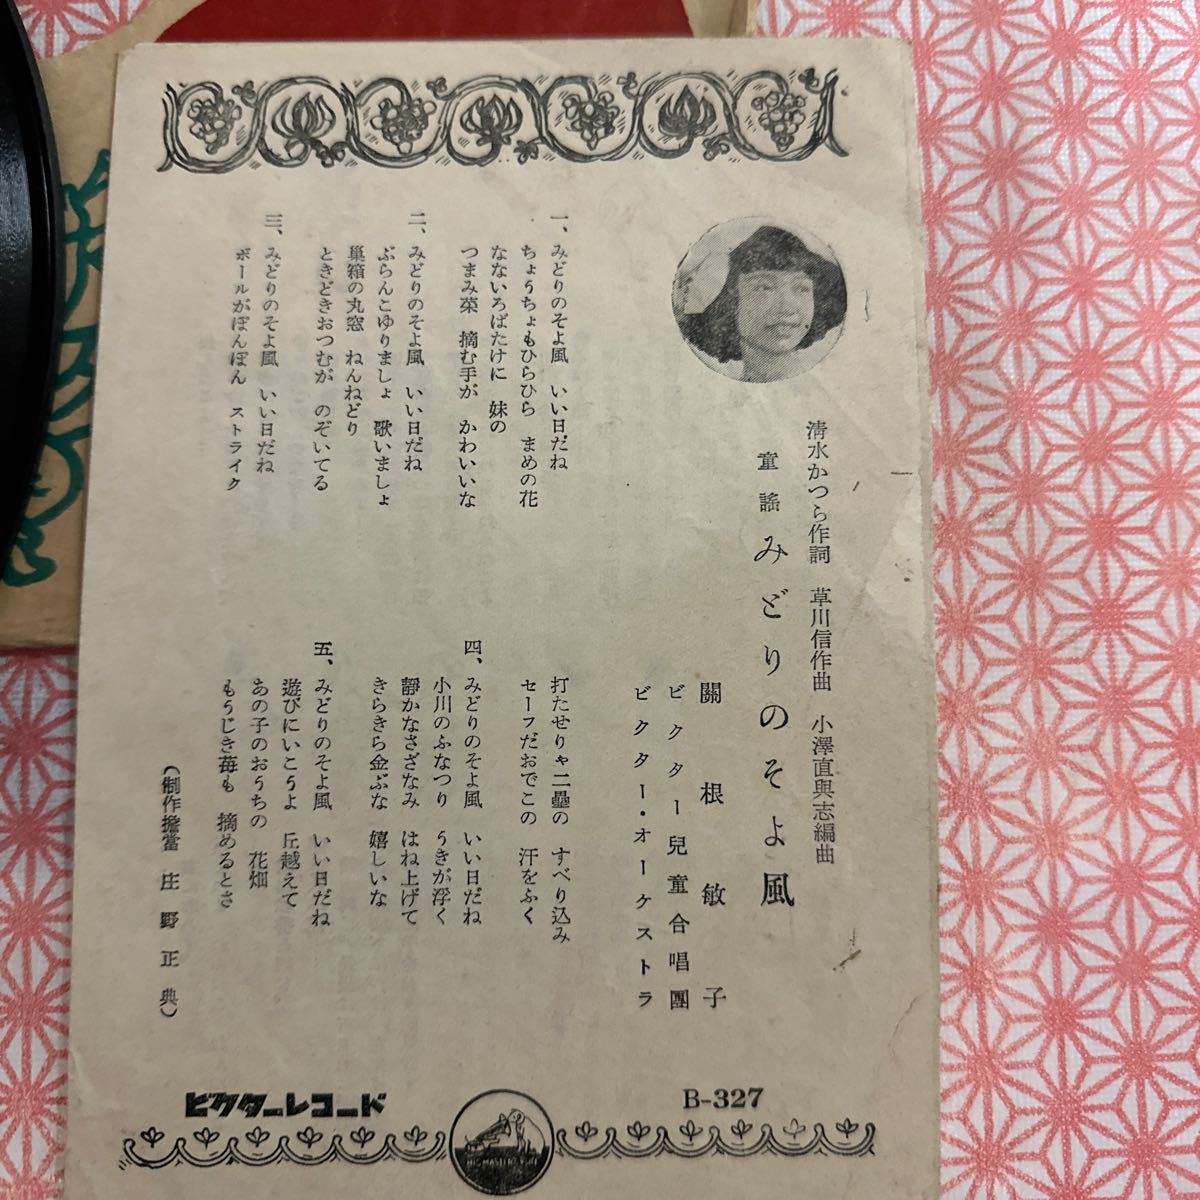 清水かつら作詞 草川信作曲 小澤直與志編曲
童謠 みどりのそよ風
關根敏子
ビクター兒童合唱團
ビクター・オーケストラ
一、みどりのそよ風 いい日だね
ちょうちょもひらひら まめの花
なないろばたけに 妹の
つまみ菜 摘む手が かわいいな
二、みどりのそよ風 いい日だね
ぶらんこゆりましょ 歌いましょ
巣箱の丸窓 ねんねどり
ときどきおつむが のぞいてる
三、みどりのそよ風 いい日だね
ボールがぽんぽん ストライク
打たせりゃ二壘の すべり込み
セーフだおでこの 汗をふく
四、みどりのそよ風 いい日だね
小川のふなつり うきが浮く
靜かなさざなみ はね上げて
きらきら金ぶな 嬉しいな
五、みどりのそよ風 いい日だね
遊びにいこうよ 丘越えて
あの子のおうちの 花畑
もうじき苺も 摘めるとさ
(制作擔當 庄野正典)
ビクターレコード
B-327
HIS MASTER'S VOICE